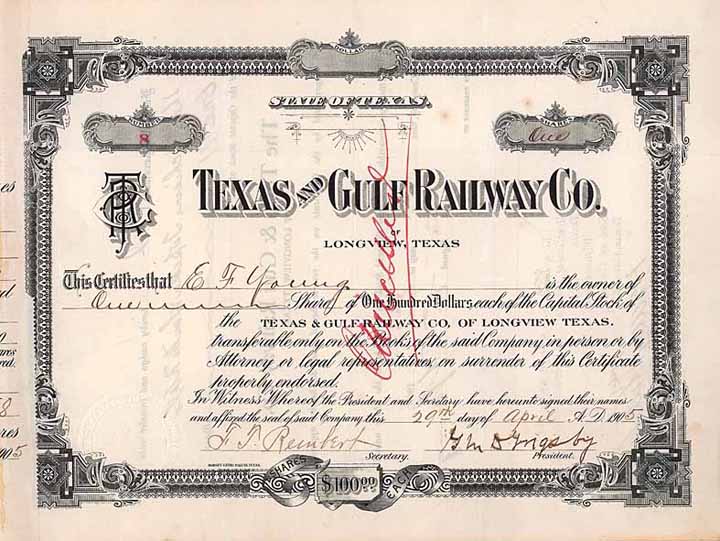 DOLLAR
STATE OF TEXAS.
NUMBER
8
SHARES
One
TRC
TEXAS AND GULF RAILWAY CO.
OF
LONGVIEW, TEXAS
Cancelled
This Certifies that E F Young is the owner of
One Shares of One Hundred Dollars each of the Capital Stock of
the TEXAS & GULF RAILWAY CO, OF LONGVIEW TEXAS.
transferable only on the Books of the said Company in person or by
Attorney or legal representatives, on surrender of this Certificate
properly endorsed.
In Witness Whereof the President and Secretary have hereunto signed their names
and affixed the seal of said Company this 29th day of April A.D. 1905
Secretary.
President.
SHARES $100.00 EACH
es
ares
red.
8
res
1905